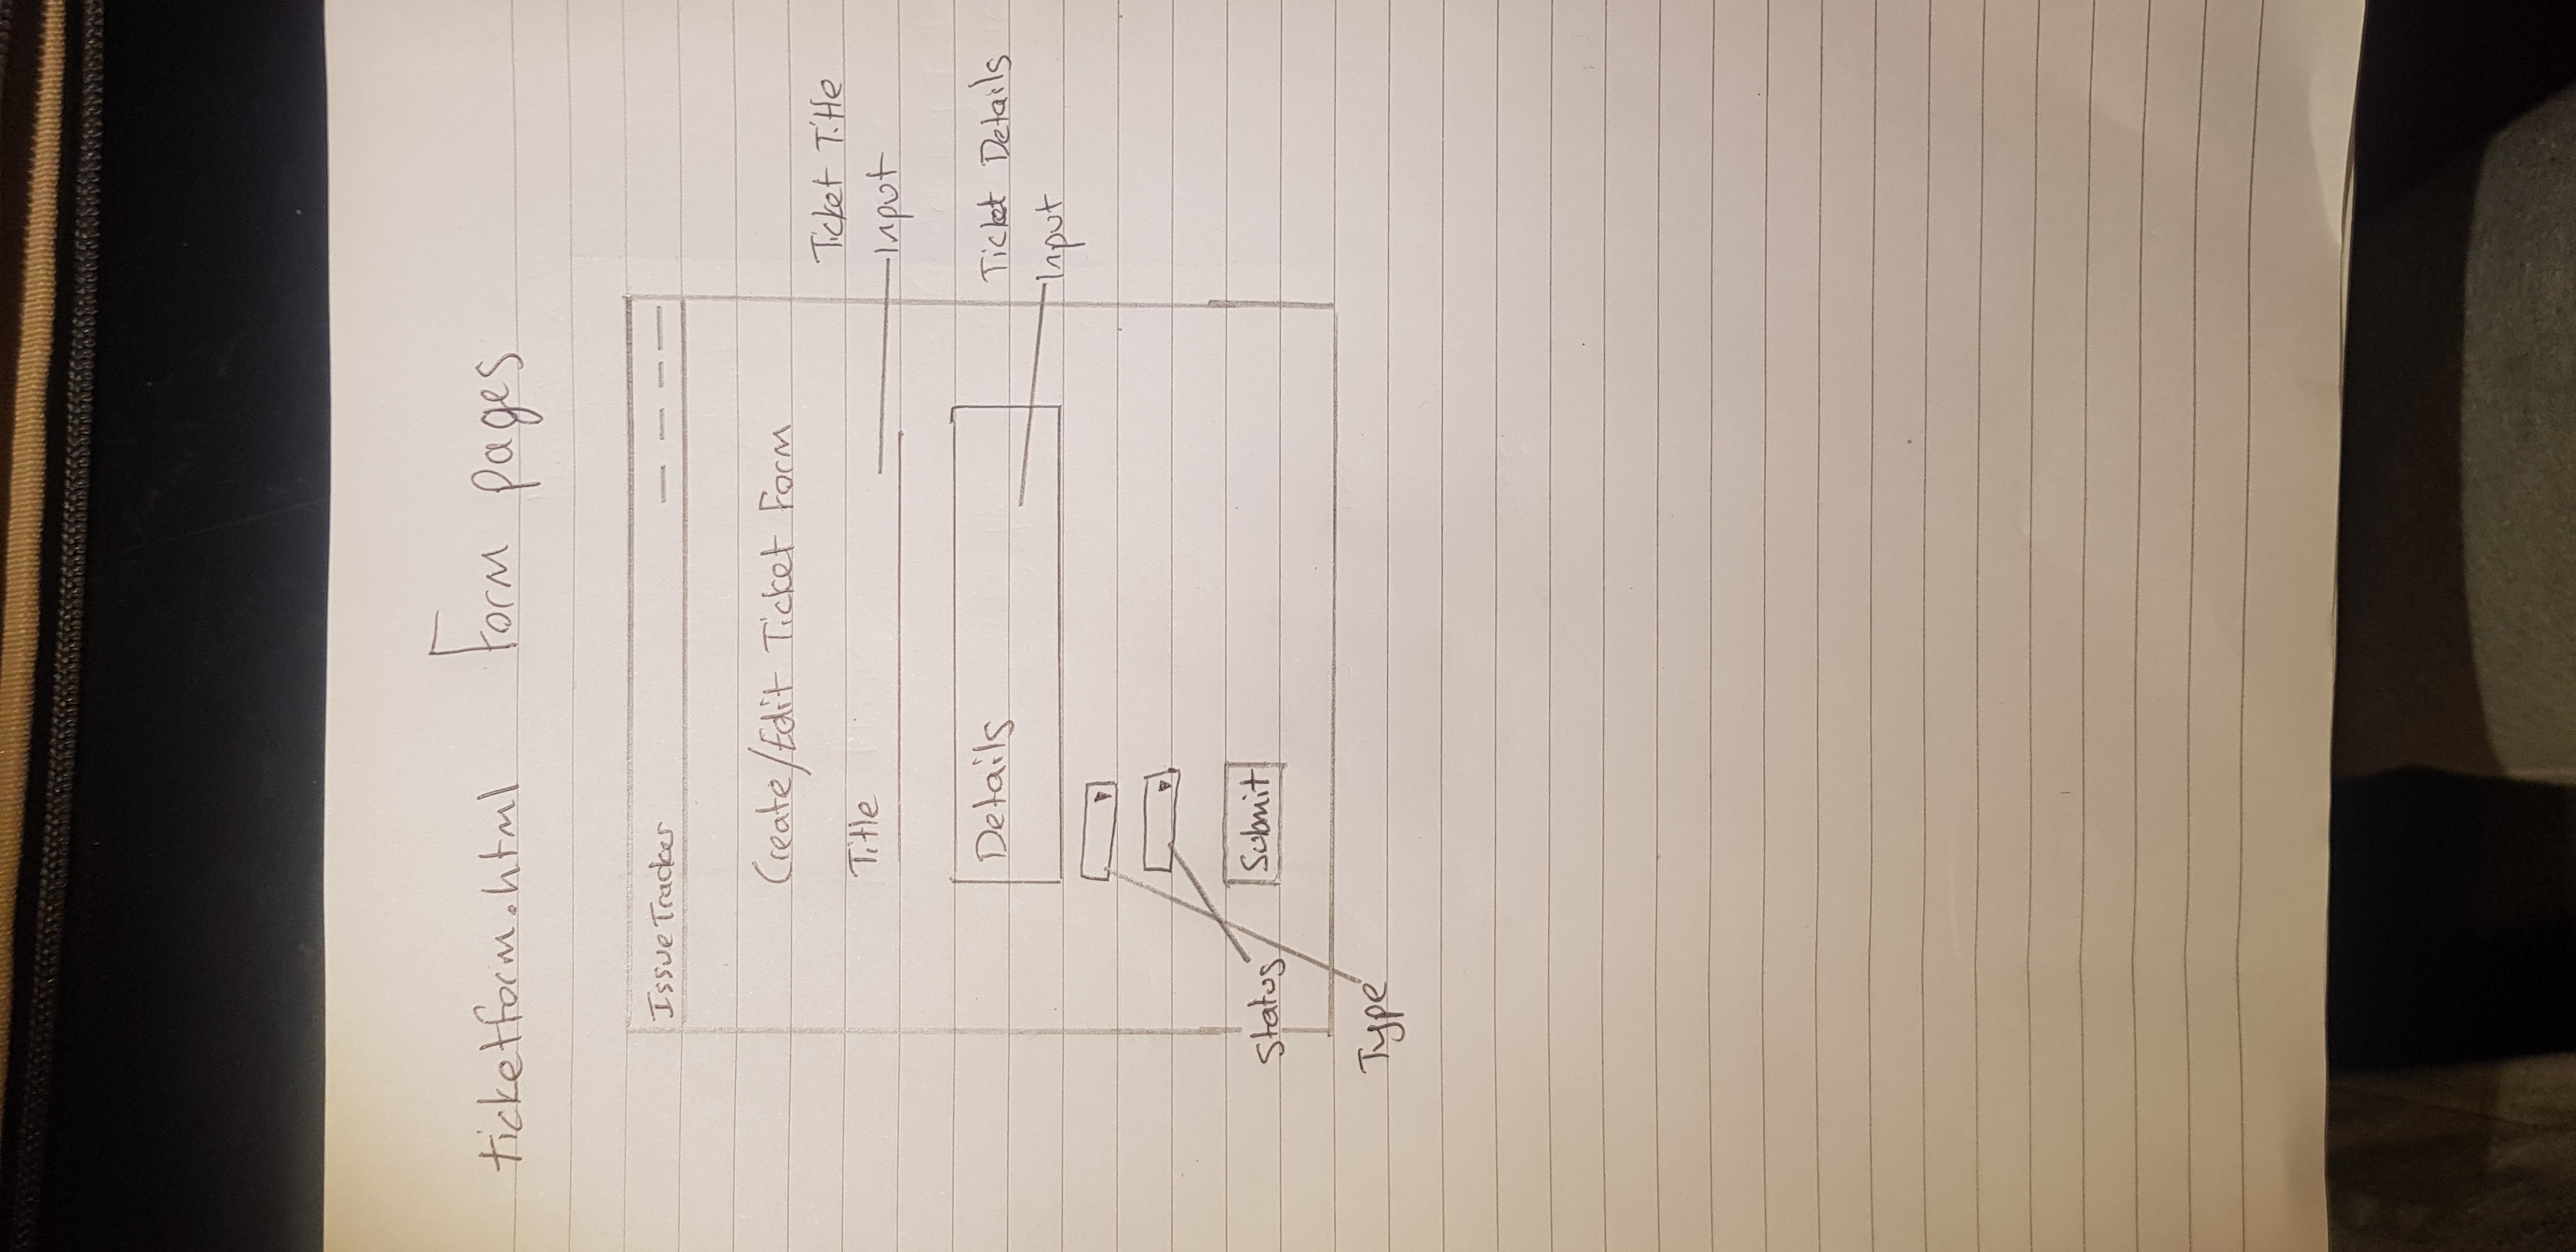 ticketform.html Form pages
IssueTracker
Create/Edit Ticket Form
Title
Ticket Title
Input
Details
Ticket Details
Input
Status
Submit
Type